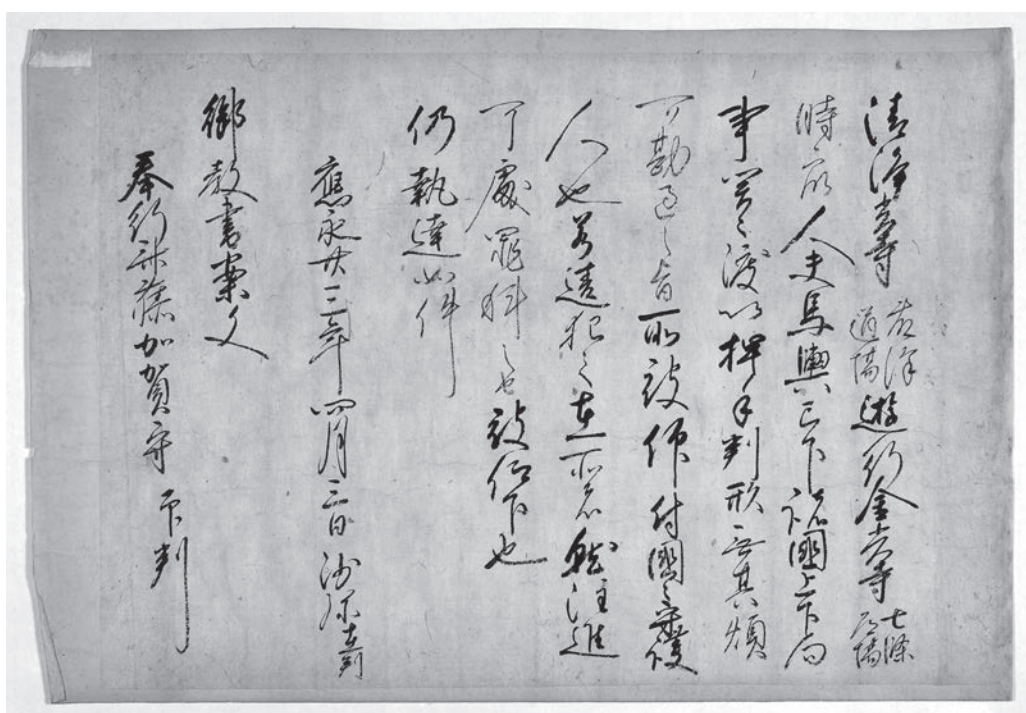 清浄光寺 藤澤道場 遊行金光寺 七條道場
時衆人夫馬輿已下諸國上下向
事関々渡以押手判形無其煩
可勘過之旨所被仰付國々守護
人也若違犯之在所者就注進
可處罪科之由所被仰下也
仍執達如件
應永廿三年四月三日 沙弥在判
御教書案文
奉行斎藤加賀守 在判